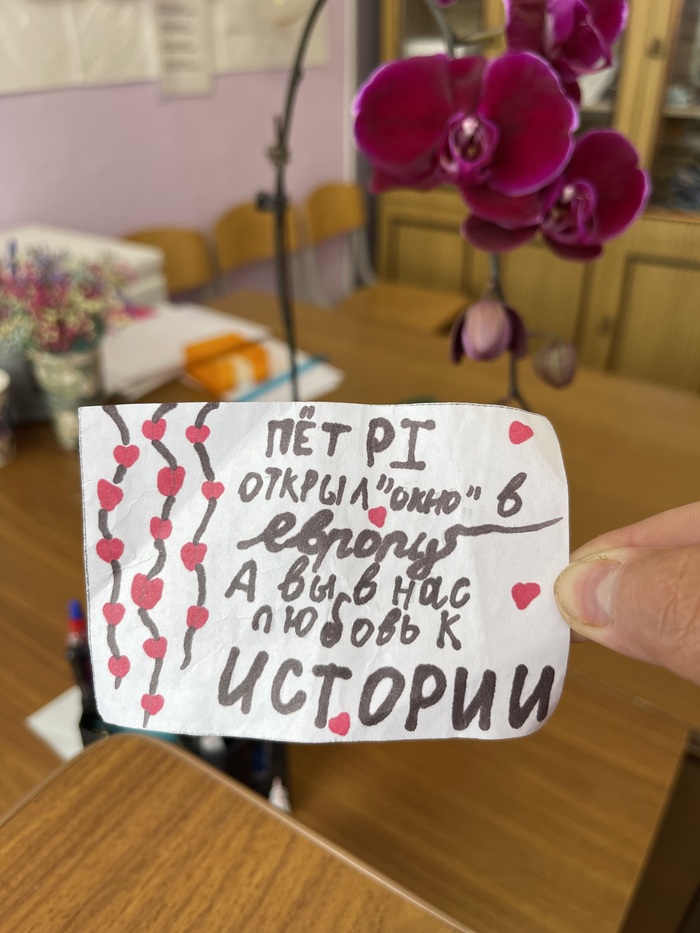 ПЁТРI
ОТКРЫЛ "ОКНО" В
европу
А вы в нас
любовь к
ИСТОРИИ